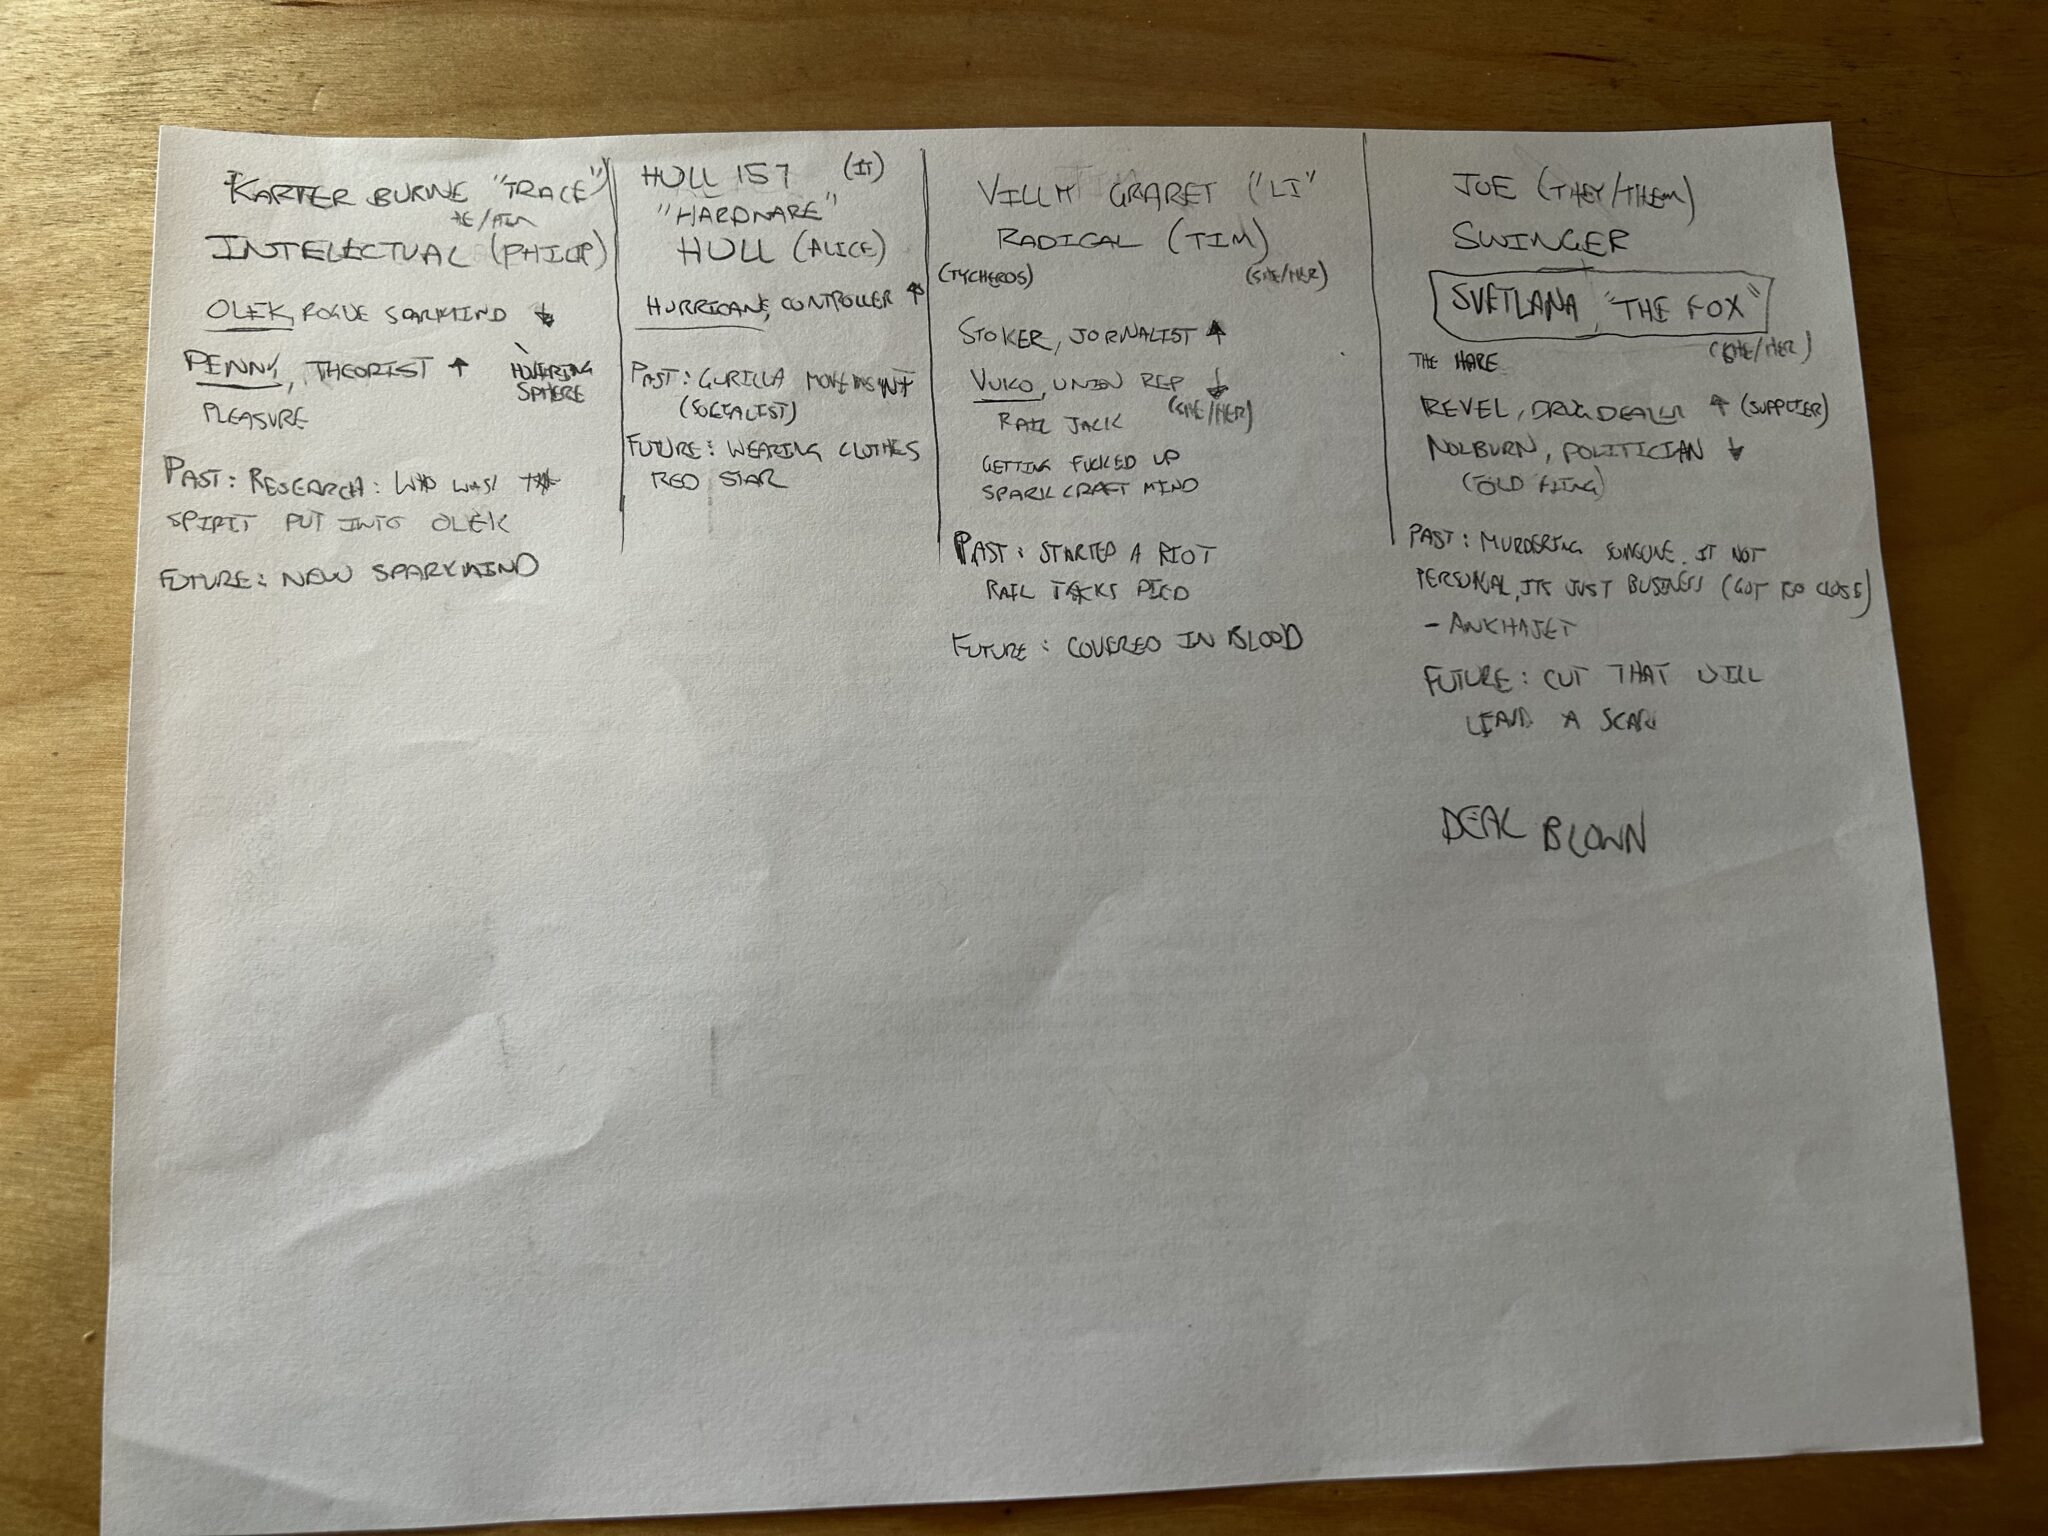 KARTER BURNE "TRACE"
HE/HIM
INTELECTUAL (PHILIP)
OLEK, ROGUE SPARKMIND ↓
PENNY, THEORIST ↑
HOVERING
SPHERE
PLEASURE
PAST: RESEARCH: WHO WAS THE
SPIRIT PUT INTO OLEK
FUTURE: NEW SPARKMIND
HULL 157 (IT)
"HARDWARE"
HULL (ALICE)
HURRICANE, CONTROLLER ↑
PAST: GURILLA MOVEMENT
(SOCIALIST)
FUTURE: WEARING CLOTHES
RED STAR
VILLM GRARET ("LI"
RADICAL (TIM)
(TYCHEROS) (SHE/HER)
STOKER, JORNALIST ↑
VUKO, UNION REP ↓
(SHE/HER)
RAIL JACK
GETTING FUCKED UP
SPARK CRAFT MIND
PAST: STARTED A RIOT
RAIL JACKS PICD
FUTURE: COVERED IN BLOOD
JOE (THEY/THEM)
SWINGER
SVETLANA, "THE FOX"
(SHE/HER)
THE HARE
REVEL, DRUG DEALER ↑ (SUPPLIER)
NOLBURN, POLITICIAN ↓
(OLD FLING)
PAST: MURDERING SOMEONE. IT NOT
PERSONAL, ITS JUST BUSINESS (GOT TOO CLOSE)
- ANKHAJET
FUTURE: CUT THAT WILL
LEAVE A SCAR
DEAL BLOWN